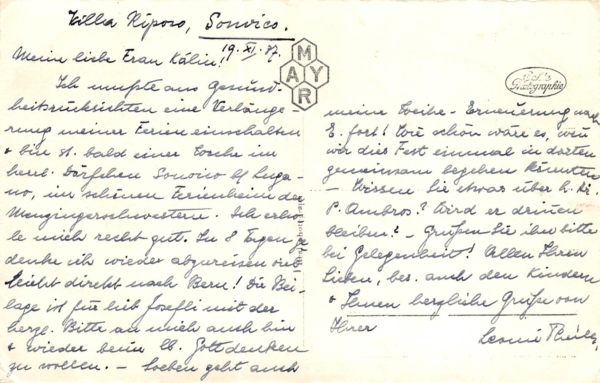 Villa Riposo, Sonvico.
19. XI. 37.
Meine liebe Frau Kälin!
Ich mußte aus Gesund-
heitsrücksichten eine Verlänge-
rung meiner Ferien einschalten
+ bin st. bald einer Woche im
herrl. Dörfchen Sonvico b/ Luga-
no, im schönen Ferienheim der
Menzingerschwestern. Ich erho-
le mich recht gut. In 8 Tagen ge-
denke ich wieder abzureisen viel-
leicht direkt nach Bern! Die Bei-
lage ist für lieb Josefli mit der
herzl. Bitte an mich auch hin
+ wieder beim lb. Gott denken
zu wollen. – Soeben geht auch
MAYR
Echte
Photographie
meine Weihe-Erneuerung nach
E. fort! Wie schön wäre es, wenn
wir dies Fest einmal in dorten
gemeinsam begehen könnten
– Wissen Sie etwas über
P. Ambros? Wird er drinnen
bleiben? – Grüßen Sie ihn bitte
bei Gelegenheit! Allen Ihren
Lieben, bes. auch den Kindern
+ Ihnen herzliche Grüße von
Ihrer
Leonie